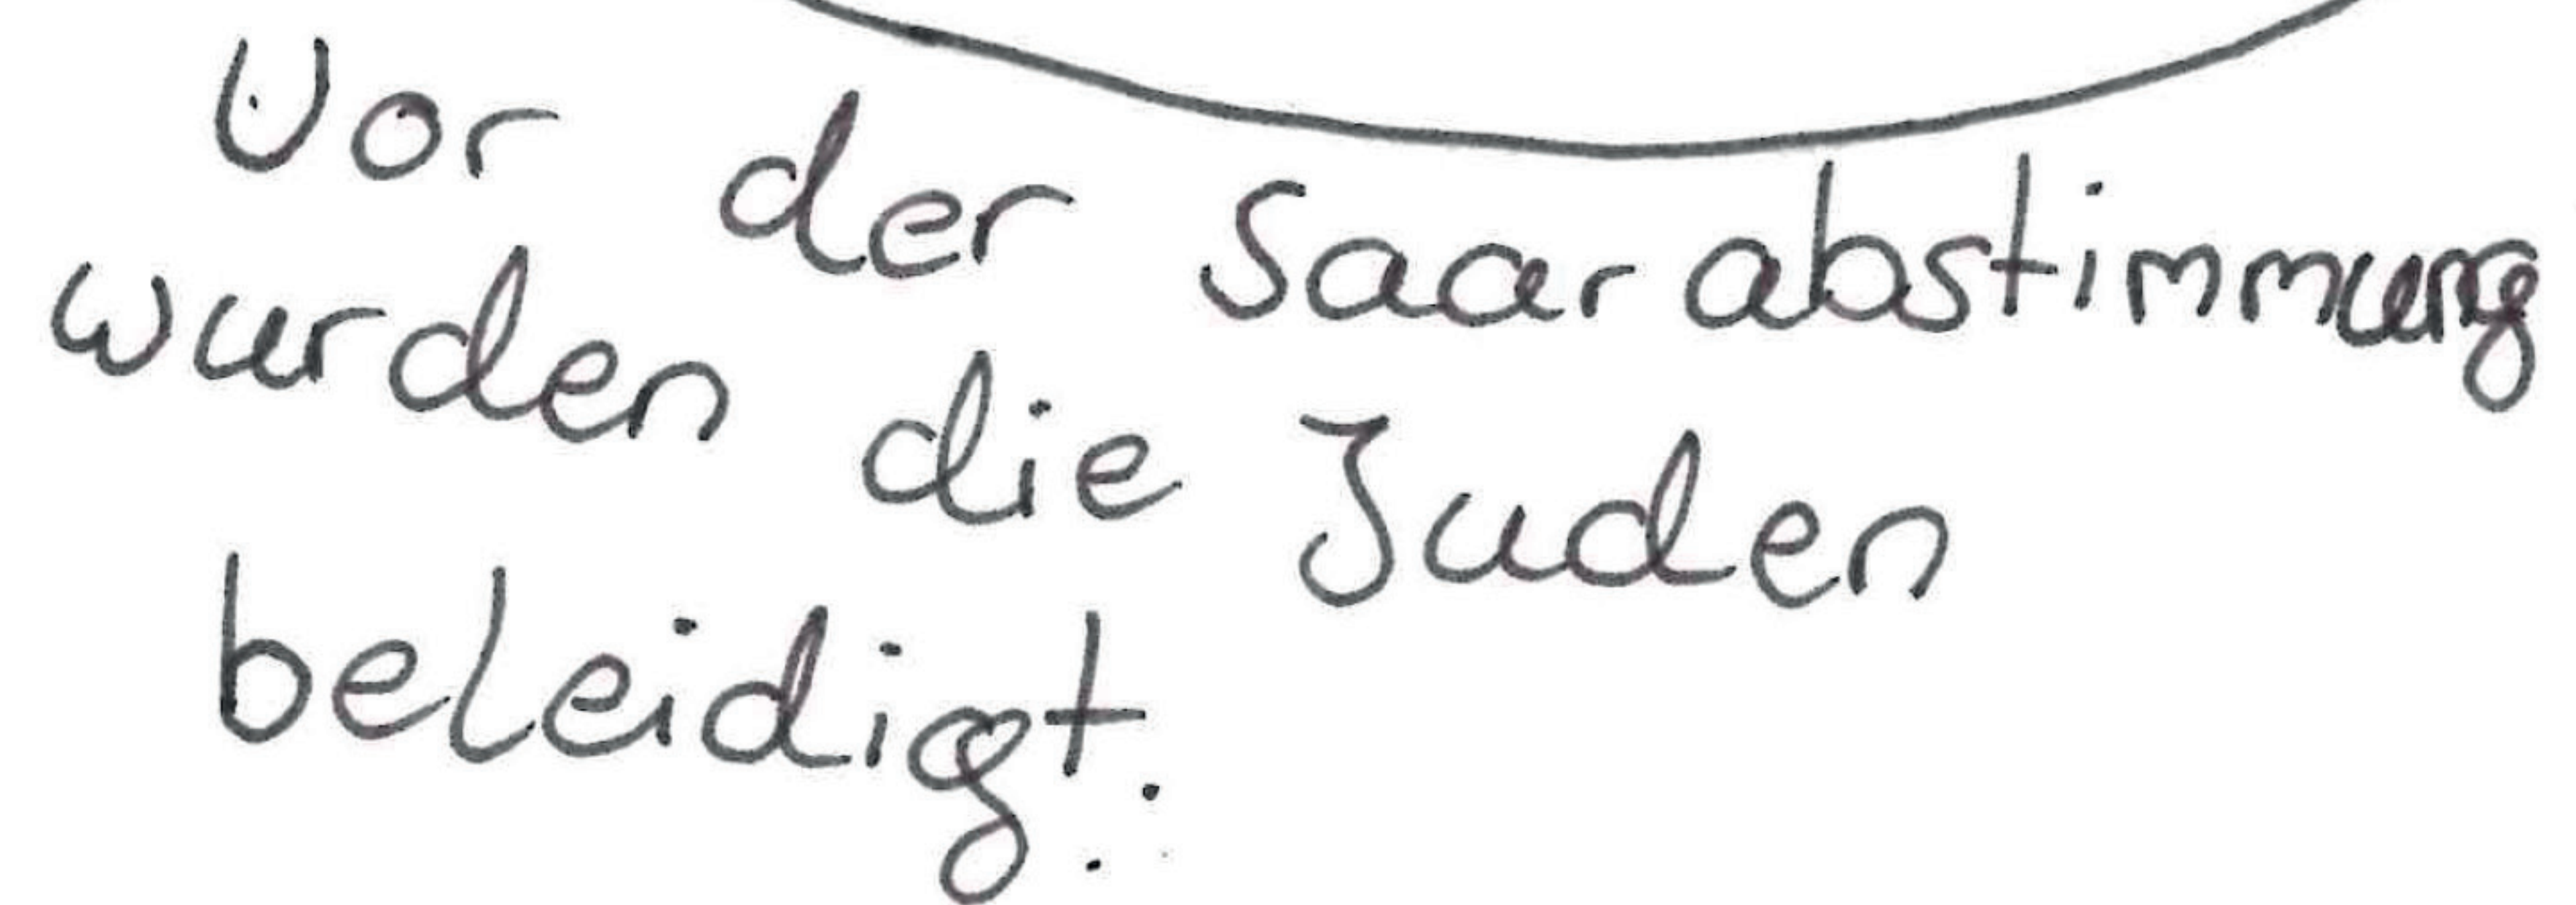 Vor der Saarabstimmung
wurden die Juden
beleidigt.